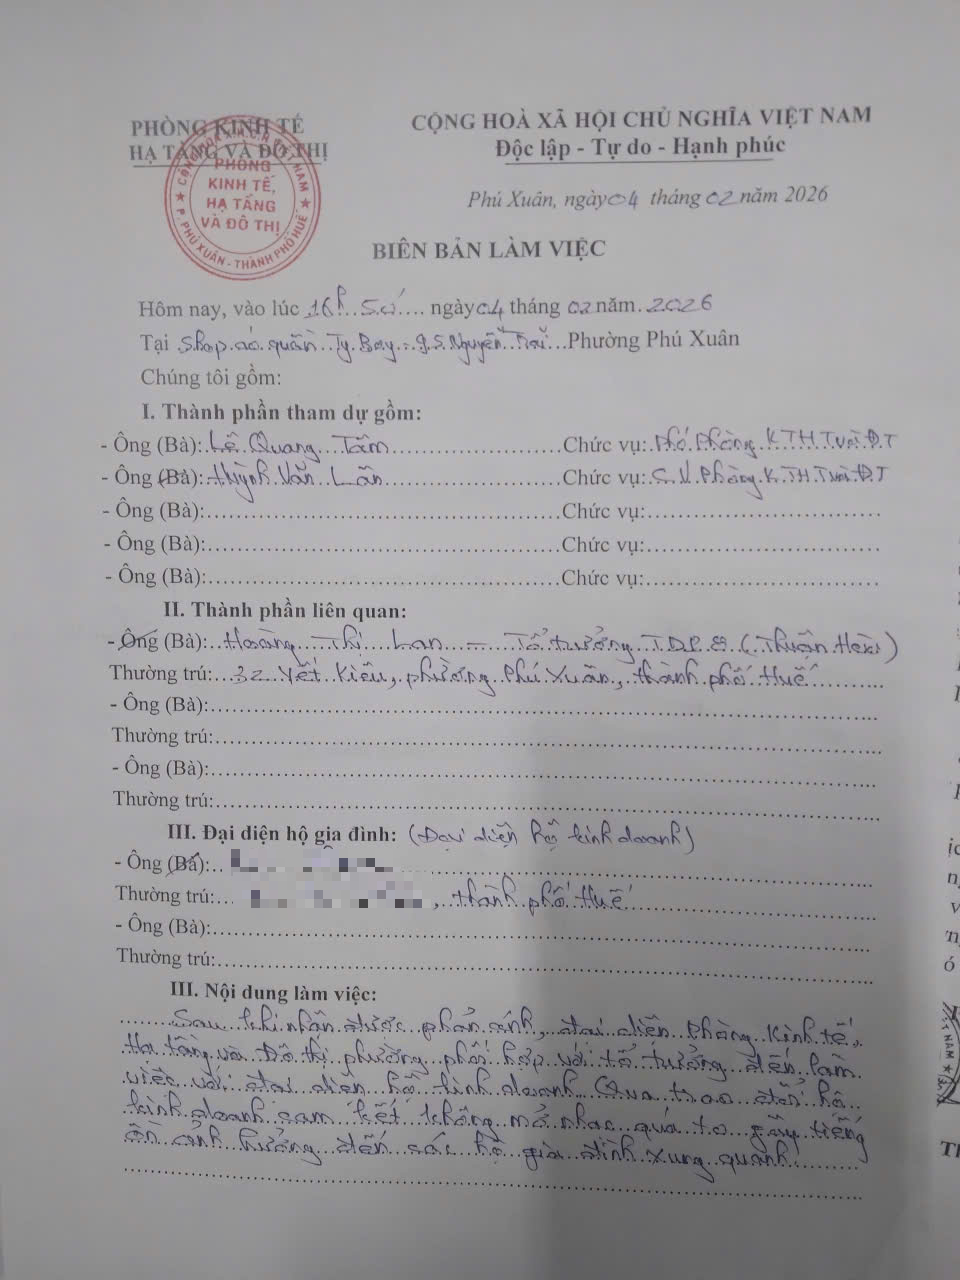 PHÒNG KINH TẾ
HẠ TẦNG VÀ ĐÔ THỊ
CỘNG HOÀ XÃ HỘI CHỦ NGHĨA VIỆT NAM
Độc lập - Tự do - Hạnh phúc
PHÒNG
KINH TẾ,
HẠ TẦNG
VÀ ĐÔ THỊ
P. PHÚ XUÂN - THÀNH PHỐ HUẾ
Phú Xuân, ngày 04 tháng 02 năm 2026
BIÊN BẢN LÀM VIỆC
Hôm nay, vào lúc 16h 50' ngày 04 tháng 02 năm 2026
Tại Shop áo quần Ty Bay - Nguyễn Trãi Phường Phú Xuân
Chúng tôi gồm:
I. Thành phần tham dự gồm:
- Ông (Bà): Lê Quang Tâm Chức vụ: Phó Phòng KTHT và ĐT
- Ông (Bà): Huỳnh Văn Lân Chức vụ: C.V Phòng KTHT và ĐT
- Ông (Bà): Chức vụ:
- Ông (Bà): Chức vụ:
- Ông (Bà): Chức vụ:
II. Thành phần liên quan:
- Ông (Bà): Hoàng Thị Lan - Tổ trưởng TDP 8 (Thuận Hòa)
Thường trú: 32 Yết Kiêu, phường Phú Xuân, thành phố Huế
- Ông (Bà):
Thường trú:
- Ông (Bà):
Thường trú:
III. Đại diện hộ gia đình: (Đại diện hộ kinh doanh)
- Ông (Bà):
Thường trú: , thành phố Huế
- Ông (Bà):
Thường trú:
III. Nội dung làm việc:
Sau khi nhận được phản ánh, đại diện Phòng Kinh tế,
Hạ tầng và Đô thị phường phối hợp với tổ trưởng đến làm
việc với đại diện hộ kinh doanh. Qua trao đổi hộ
kinh doanh cam kết không mở nhạc quá to gây tiếng
ồn ảnh hưởng đến các hộ gia đình xung quanh